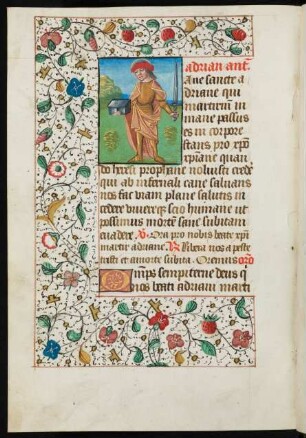 adrian ant.
Ane sancte a
driane qui
martirium in
mane passus
es in corpore
stans pro xpo
xpiane quan
do heresi prophane noluisti crede
qui ab infernali cane saluans
nos fac viam plane salutis in
cedere viuere scio humane ut
possimus mortem sane subitam
euadere ℣ Ora pro nobis beate xpi
martir adriane ℟ libera nos a peste
tristi et a morte subita Oremus oro
Omps sempiterne deus q
nos beati adriani marti